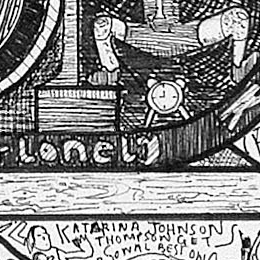 -Lonely
KATARINA JOHNSON
THOMPSON GET
SONAL BEST ON